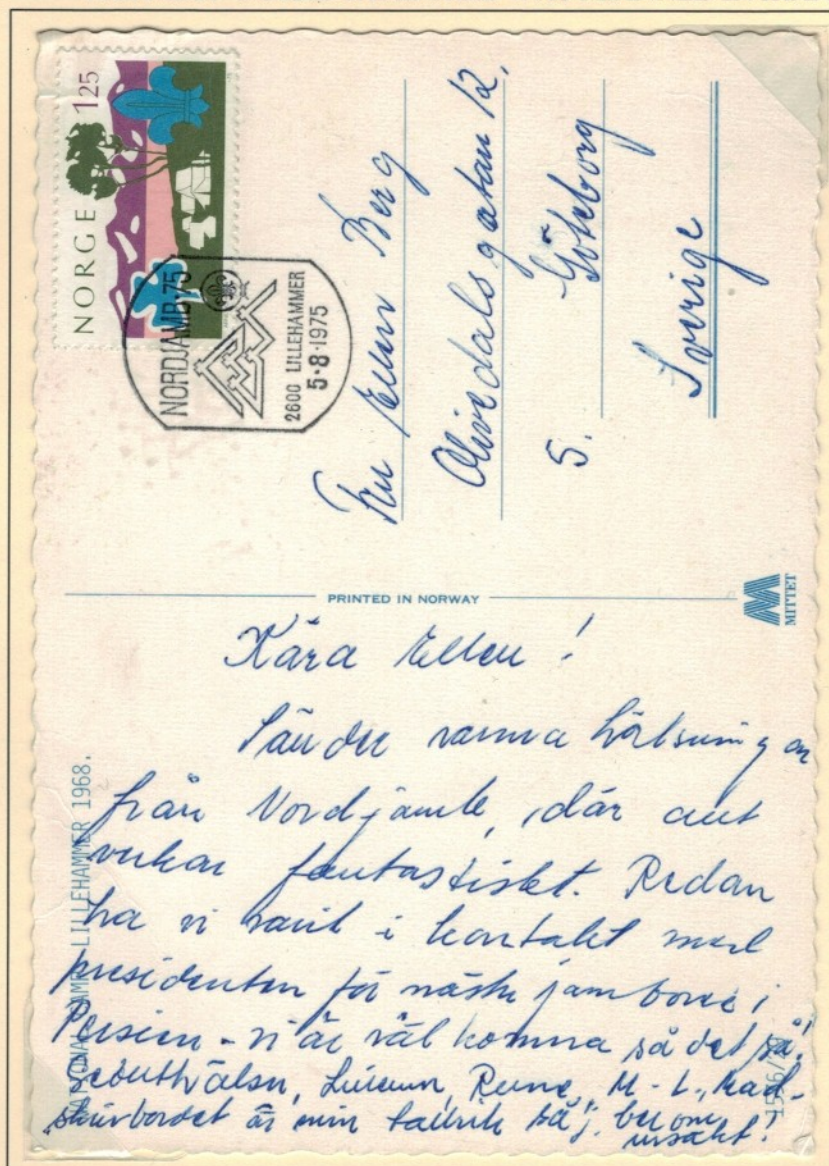 NORGE 125
NORDJAMB·75
2600 LILLEHAMMER
5·8·1975
Fru Ellen Berg
Olivedalsgatan 12,
5. Göteborg
Sverige
PRINTED IN NORWAY
MITTET
Kära Ellen!
Sänder varma hälsningar
från Nordjamb, där allt
verkar fantastiskt. Redan
ha vi varit i kontakt med
presidenten för nästa jamboree i
Persien - vi är välkomna så det så!
Scouthälsn, Rune, M-L.,
skrivbordet är min tallrik så j. ber om
ursäkt!
LILLEHAMMER 1968.